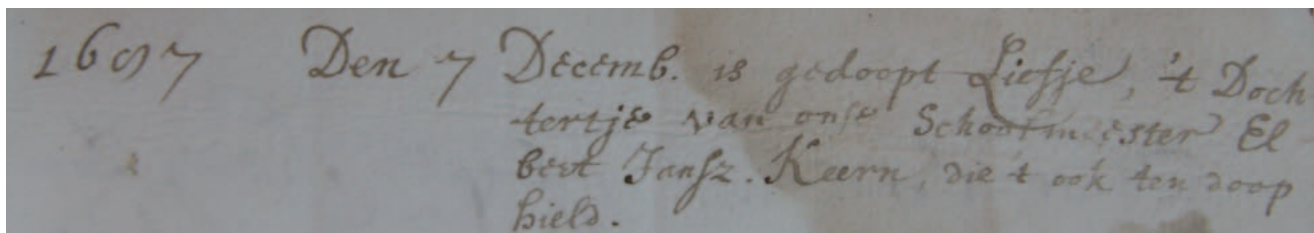 1697 Den 7 Decemb. is gedoopt Liefje, 't Doch
tertje van onse Schoolmeester El
bert Jansz. Keern, die 't ook ten doop
hield.